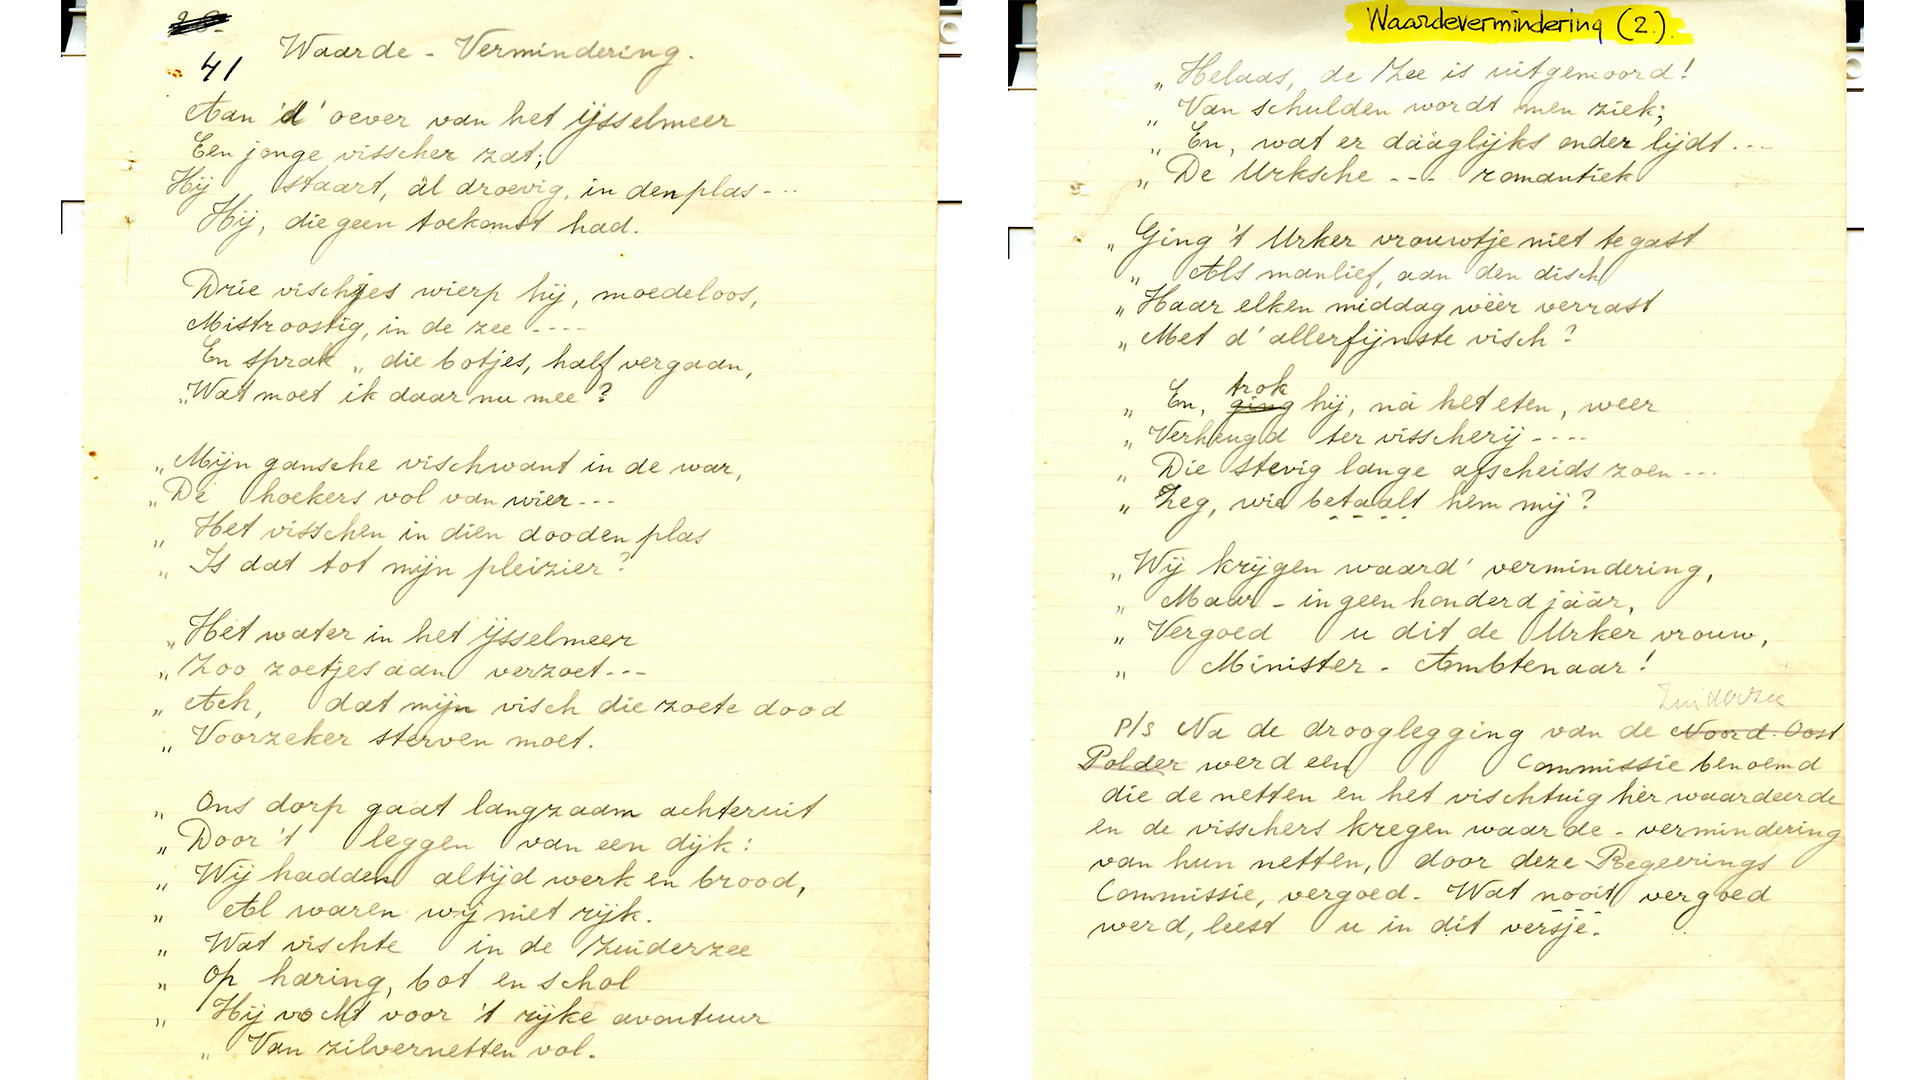 41
Waarde - Vermindering.
Aan 'd' oever van het ijsselmeer
Een jonge visscher zat;
Hij staart, al droevig, in den plas - ..
Hij, die geen toekomst had.
Drie vischjes wierp hij, moedeloos,
Mistroostig, in de zee ----
En sprak „ die botjes, half vergaan,
„Wat moet ik daar nu mee?
„Mijn gansche vischwant in de war,
„De hoekers vol van wier ---
„ Het visschen in dien dooden plas
„ Is dat tot mijn pleizier?
„Het water in het ijsselmeer
„Zoo zoetjes aan verzoet ---
„ Ach, dat mijn visch die zoete dood
„ Voorzeker sterven moet.
„ Ons dorp gaat langzaam achteruit
„ Door 't leggen van een dijk:
„ Wij hadden altijd werk en brood,
„ Al waren wij niet rijk.
„ Wat vischte in de Zuiderzee
„ Op haring, bot en schol
„ Hij vocht voor 't rijke avontuur
„ Van zilvernetten vol.
Waardevermindering (2.)
„ Helaas, de Zee is uitgemoord!
„ Van schulden wordt men ziek;
„ En, wat er dááglijks onder lijdt ...
„ De Urksche --- romantiek
„ Ging 't Urker vrouwtje niet te gast
„ Als manlief, aan den disch
„ Haar elken middag wéér verrast
„ Met d' allerfijnste visch?
trok
„ En, ging hij, ná het eten, weer
„ Verheugd ter visscherij ----
„ Die stevig lange afscheidszoen ---
„ Zeg, wie betaalt hem mij?
„ Wij krijgen waard' vermindering,
„ Maar - in geen honderd jáár,
„ Vergoed u dit de Urker vrouw,
„ Minister - Ambtenaar!
Zuiderzee
P/s Na de drooglegging van de Noord-Oost
Polder werd een Commissie benoemd
die de netten en het vischtuig hier waardeerde
en de visschers kregen waarde - vermindering
van hun netten, door deze Regeerings
Commissie, vergoed. Wat nooit vergoed
werd, leest u in dit versje.